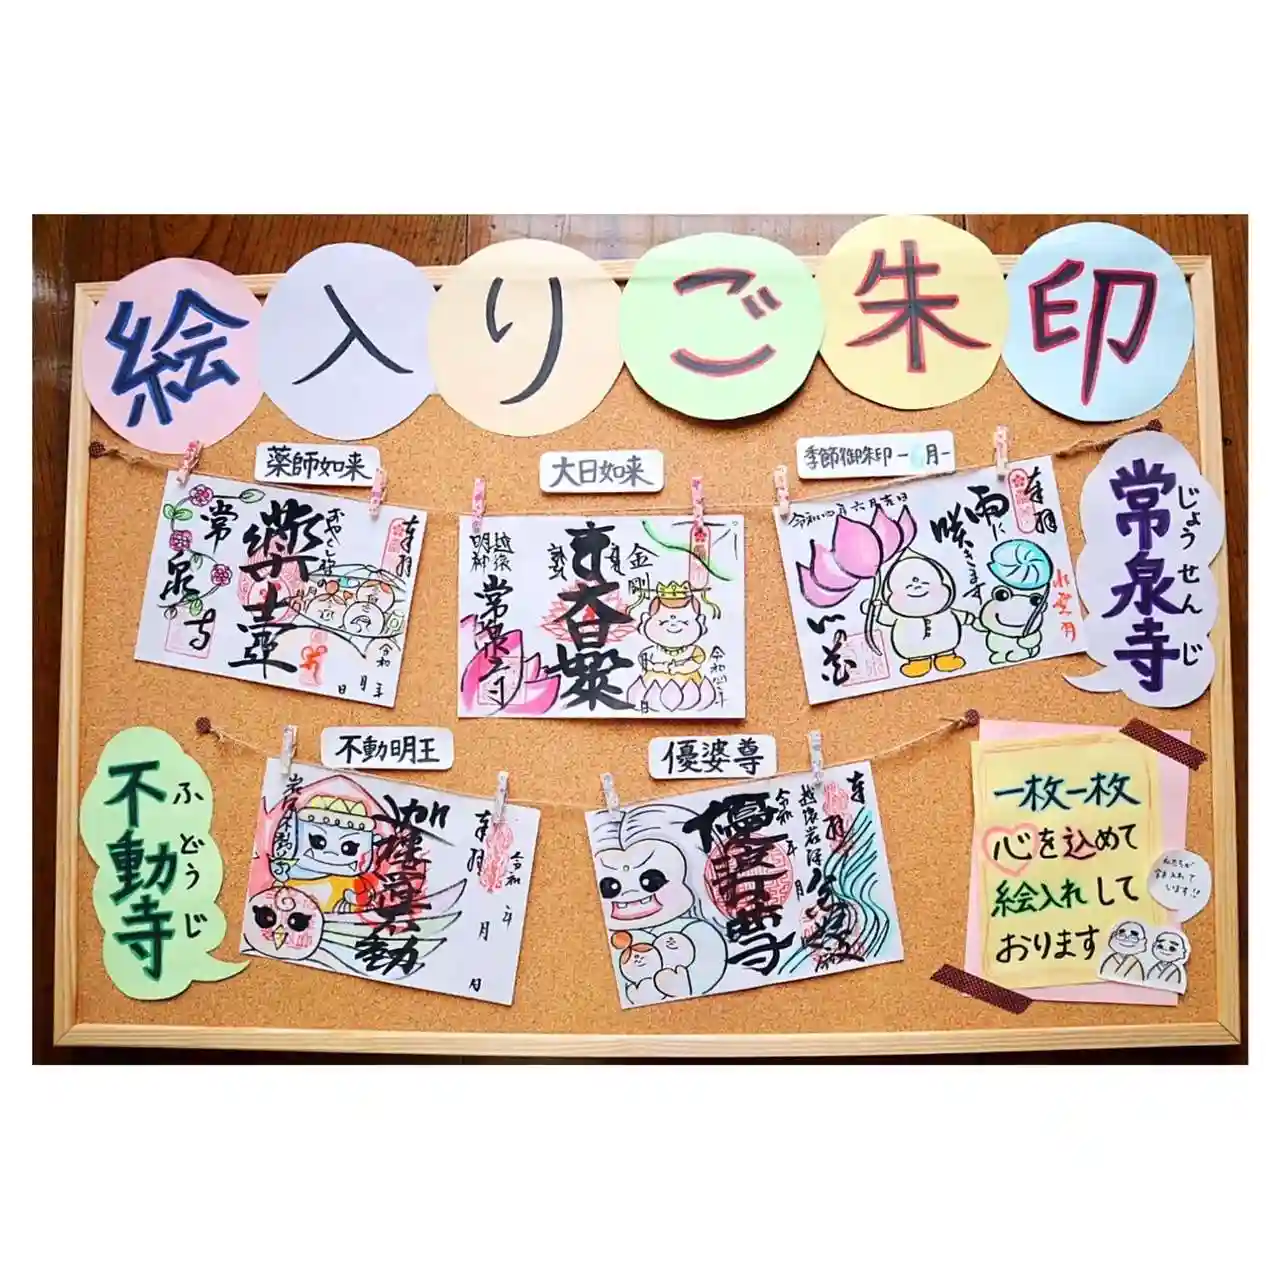 絵入りご朱印
薬師如来
大日如来
季節御朱印-6月-
常泉寺
じょうせんじ
奉拝
薬壺
常泉寺
令和 年 月 日
奉拝
金剛
大日
常泉寺
令和四年
月 日
奉拝
雨に
咲きます
心の花
水無月
令和四年六月吉日
不動明王
優婆尊
不動寺
ふどうじ
奉拝
令和 年 月 日
奉拝
優婆尊
令和 年 月
一枚一枚
心を込めて
絵入れして
おります
私たちが
絵入れて
います!!